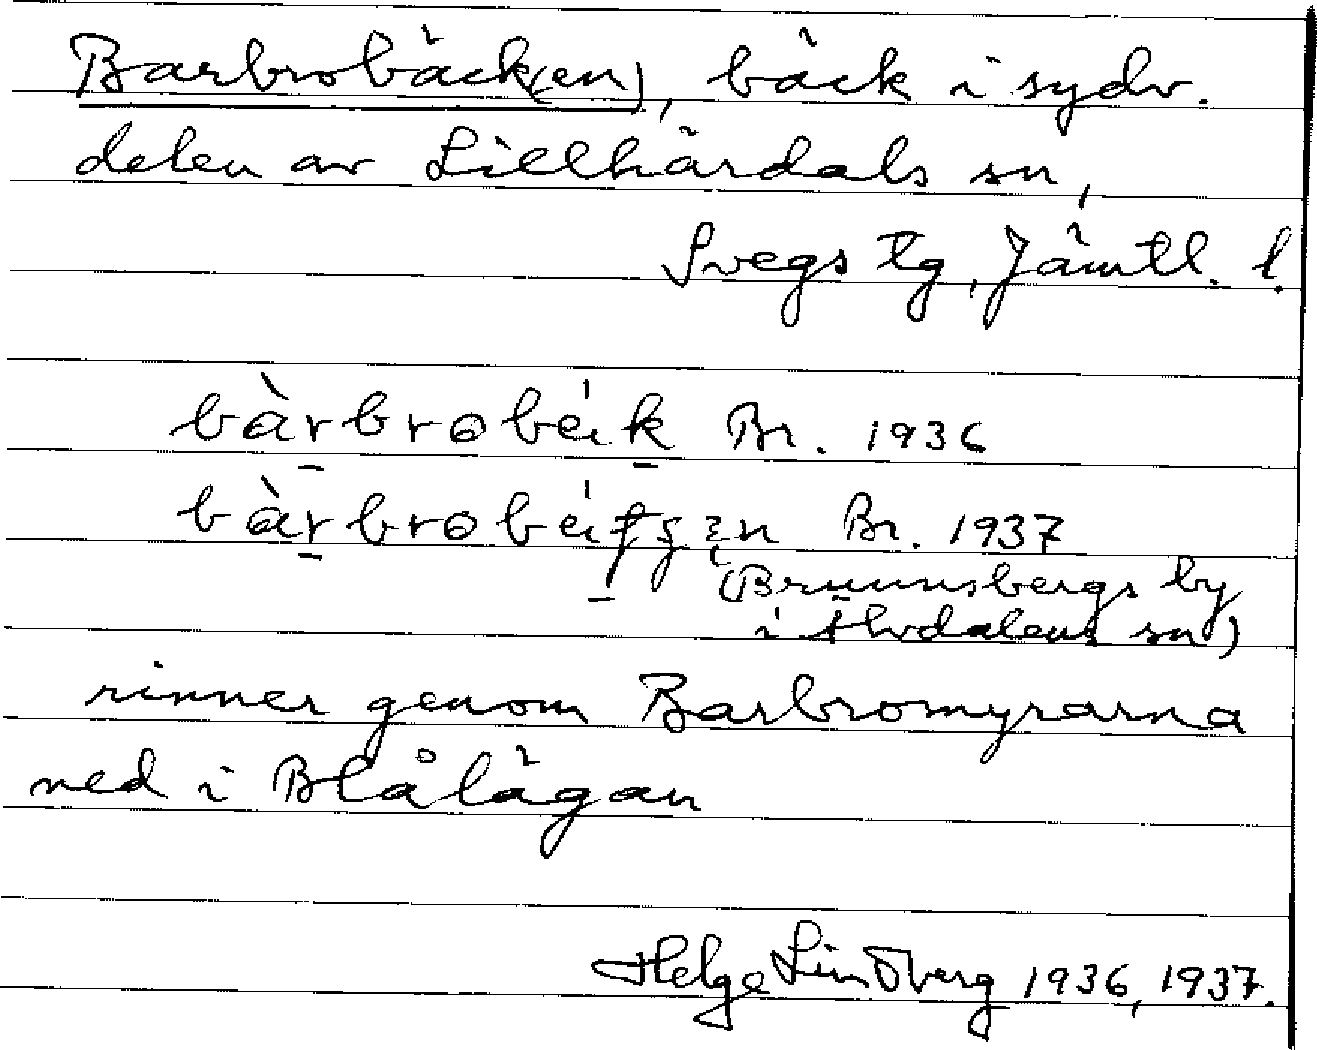 Barbrobäck(en), bäck i sydv.
delen av Lillhärdals sn,
Svegs tg, Jämtl. l.
bàrbrobéik Br. 1936
Br. 1937
(Brunnsbergs by
i Älvdalens sn)
rinner genom Barbromyrarna
ned i Blålägan
Helge Lindberg 1936, 1937.